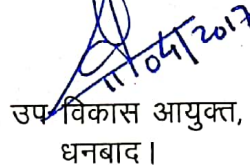 11/04/2017
उप विकास आयुक्त,
धनबाद।